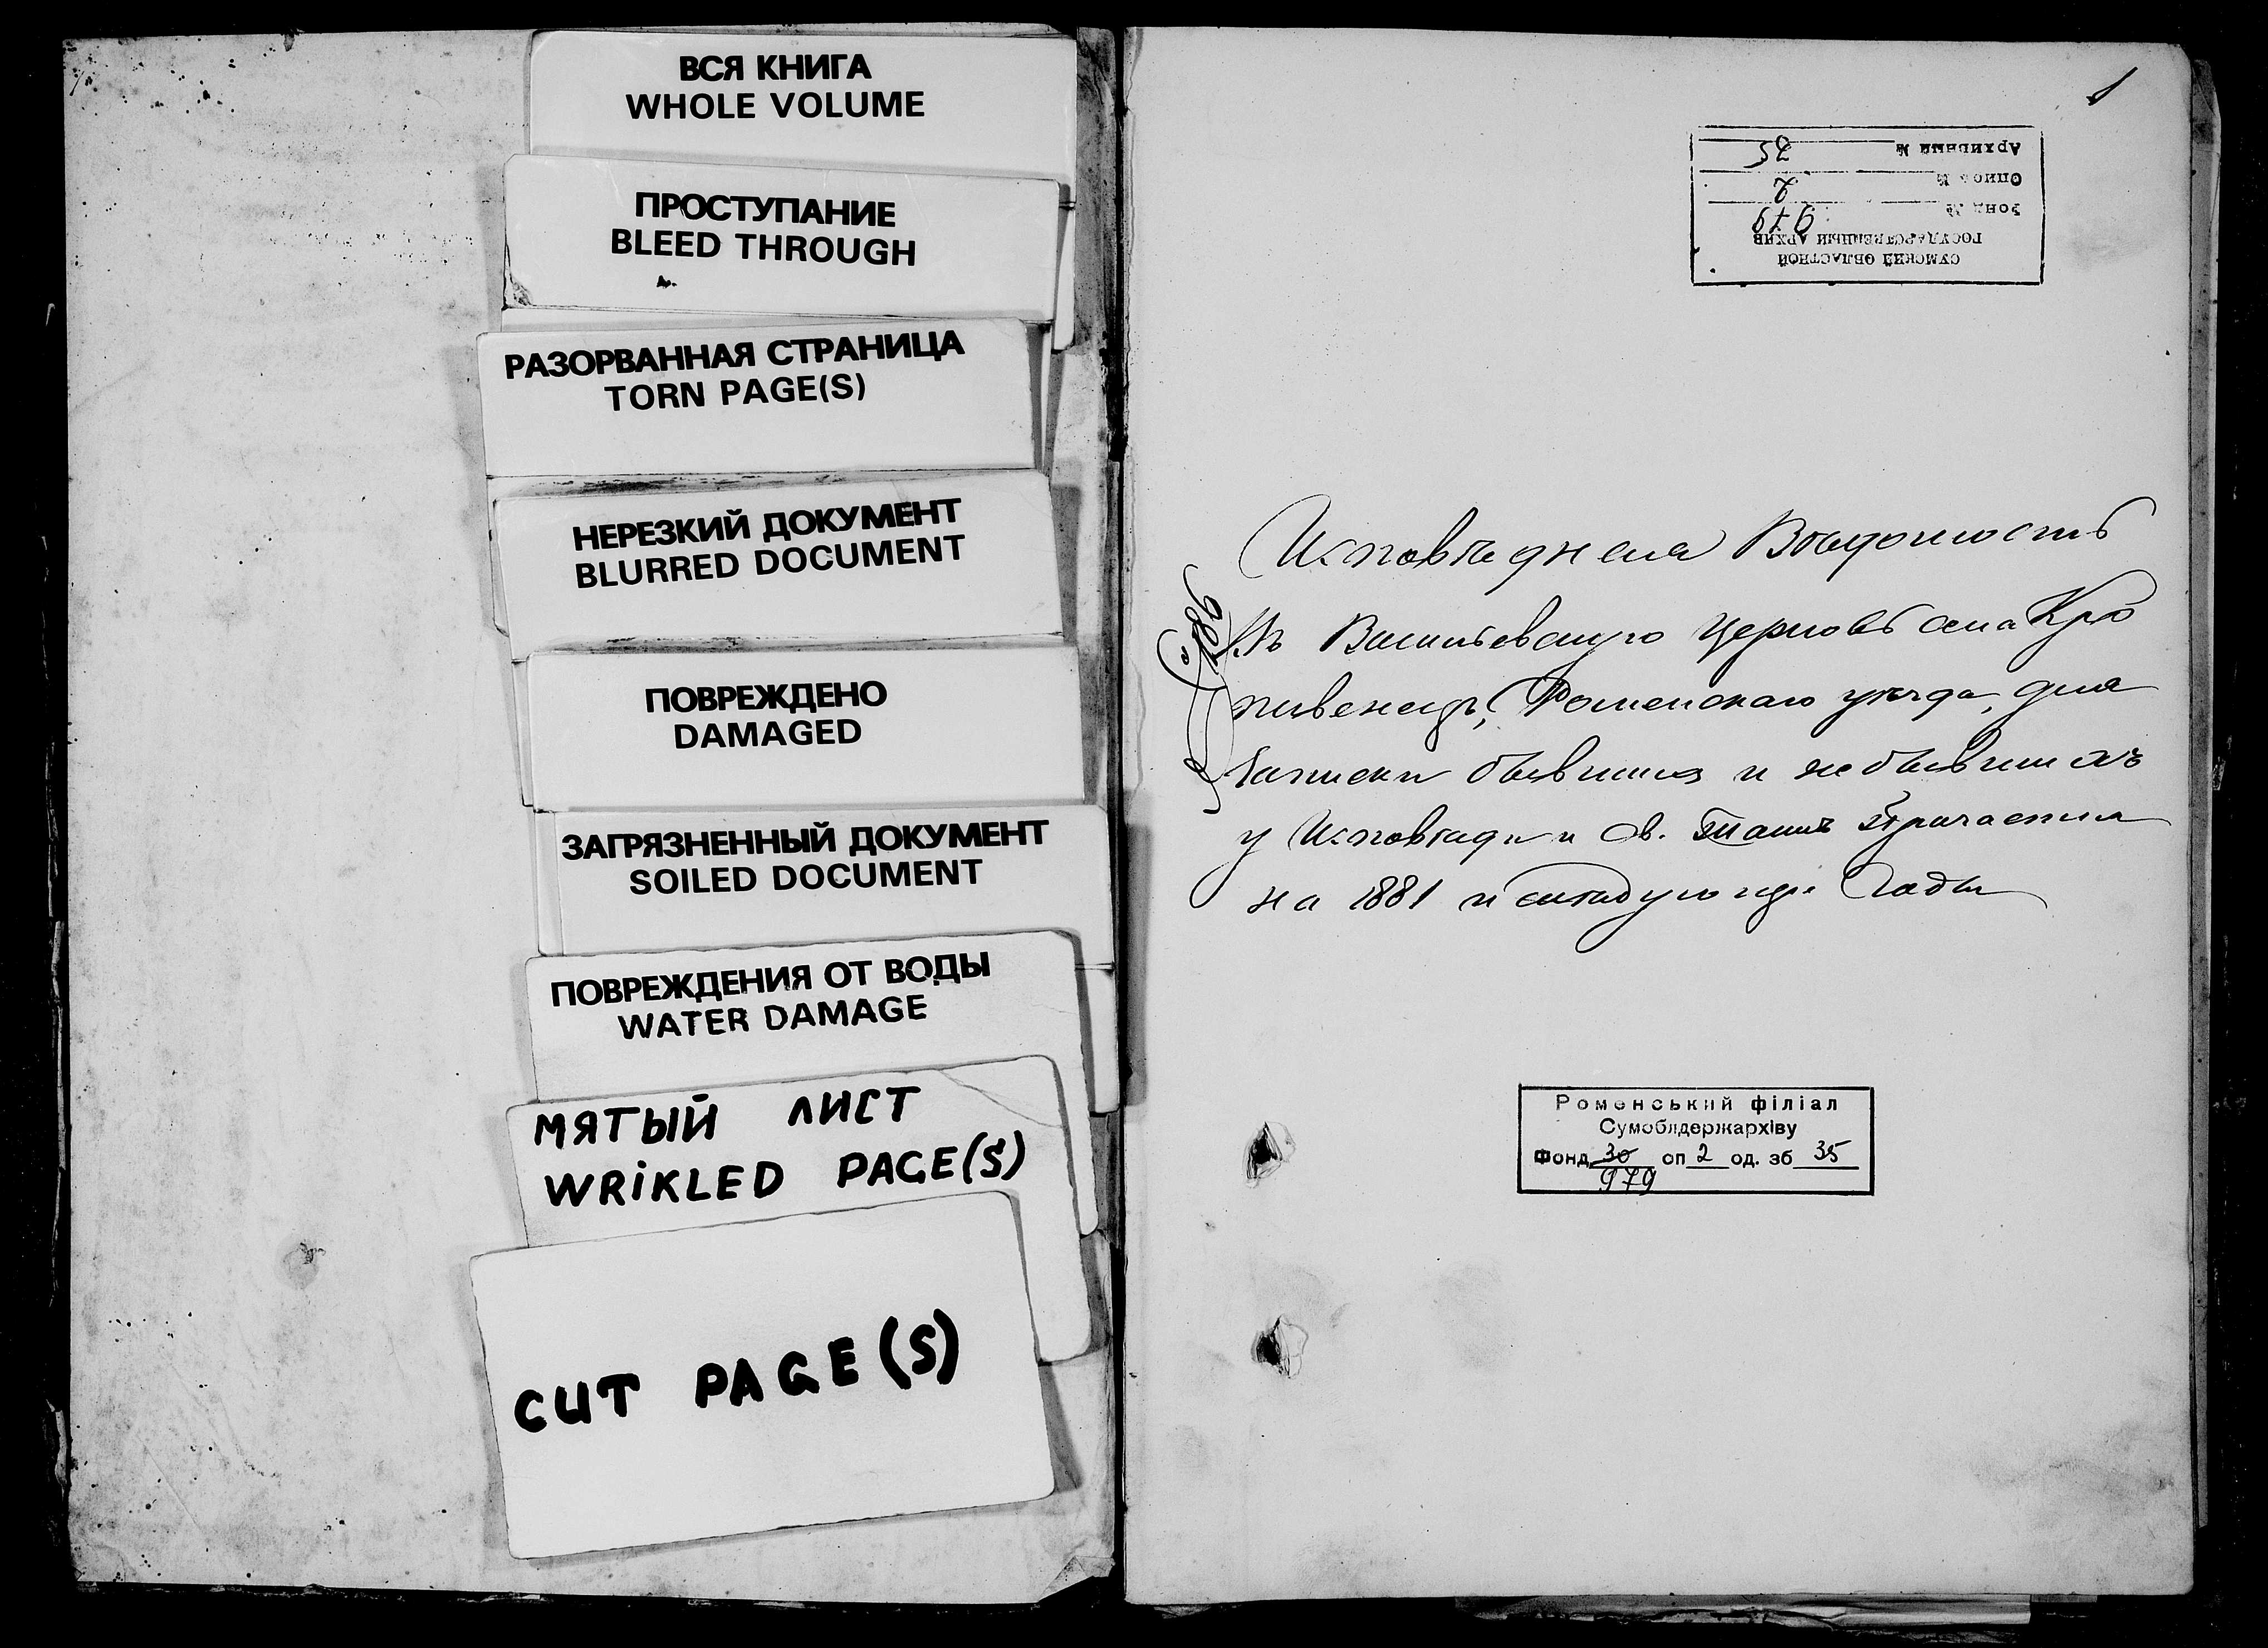 ВСЯ КНИГА
WHOLE VOLUME
ПРОСТУПАНИЕ
BLEED THROUGH
РАЗОРВАННАЯ СТРАНИЦА
TORN PAGE(S)
НЕРЕЗКИЙ ДОКУМЕНТ
BLURRED DOCUMENT
ПОВРЕЖДЕНО
DAMAGED
ЗАГРЯЗНЕННЫЙ ДОКУМЕНТ
SOILED DOCUMENT
ПОВРЕЖДЕНИЯ ОТ ВОДЫ
WATER DAMAGE
МЯТЫЙ ЛИСТ
WRIKLED PAGE(S)
CUT PAGE(S)
1
СУМСКИЙ ОБЛАСТНОЙ
ГОСУДАРСТВЕННЫЙ АРХИВ
Фонд № 979
Опись № 2
Архивный № 35
Исповѣдная Вѣдомость
Васильевскую церковь села Кро
пивенецъ, Роменскаго уѣзда, для
записки бывшихъ и небывшихъ
у Исповѣди и Св. Таинъ Причастія
на 1881 и слѣдующіе годы
Роменський філіал
Сумоблдержархіву
Фонд 30 оп 2 од. зб 35
979